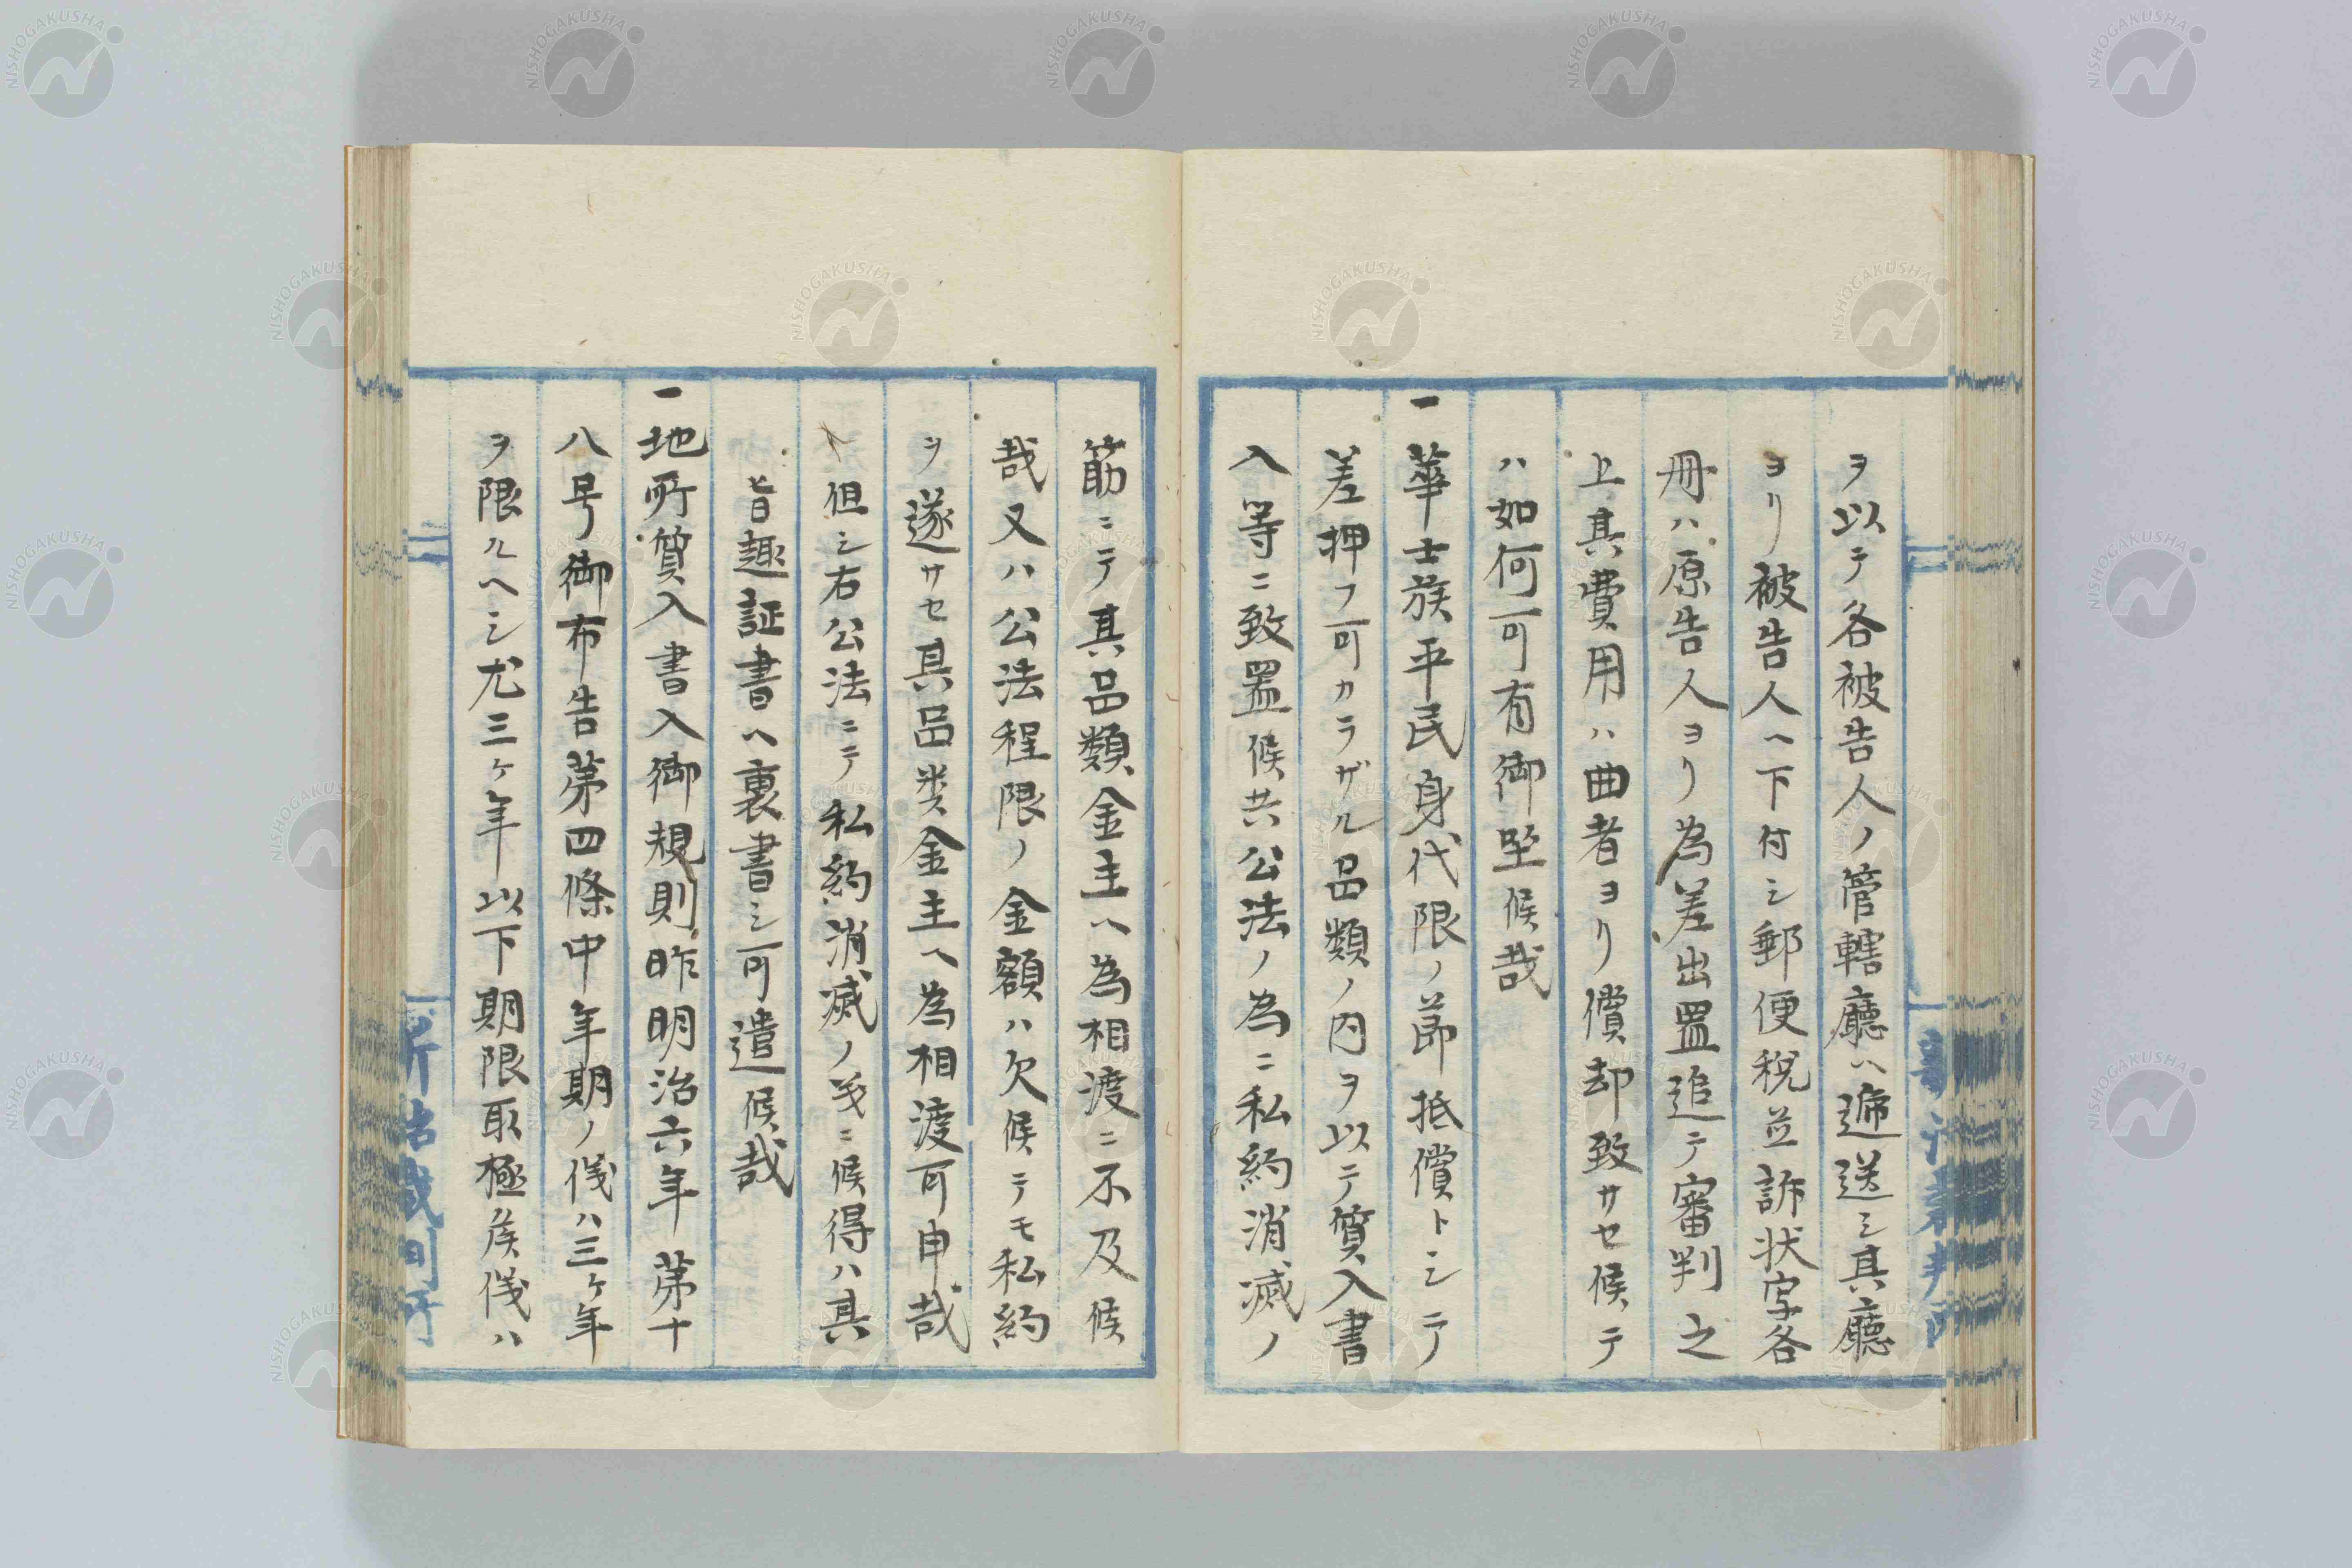 ヲ以テ各被告人ノ管轄廳ヘ遞送シ其廳
ヨリ被告人ヘ下付シ郵便税並訴状写各
冊ハ原告人ヨリ為差出置追テ審判之
上其費用ハ曲者ヨリ償却致サセ候テ
ハ如何可有御坐候哉
一華士族平民身代限ノ節抵償トシテ
差押フ可カラザル品類ノ内ヲ以テ質入書
入等ニ致置候共公法ノ為ニ私約消滅ノ
筋ニテ其品類金主ヘ為相渡ニ不及候
哉又ハ公法程限ノ金額ハ欠候テモ私約
ヲ遂サセ具品类金主ヘ為相渡可申哉
但シ右公法ニテ私約消滅ノ義ニ候得ハ其
旨趣証書ヘ裏書シ可遣候哉
一地所質入書入御規則昨明治六年第十
八号御布告第四條中年期ノ儀ハ三ヶ年
ヲ限ルヘシ尤三ヶ年以下期限取極候儀ハ
NISHOGAKUSHA